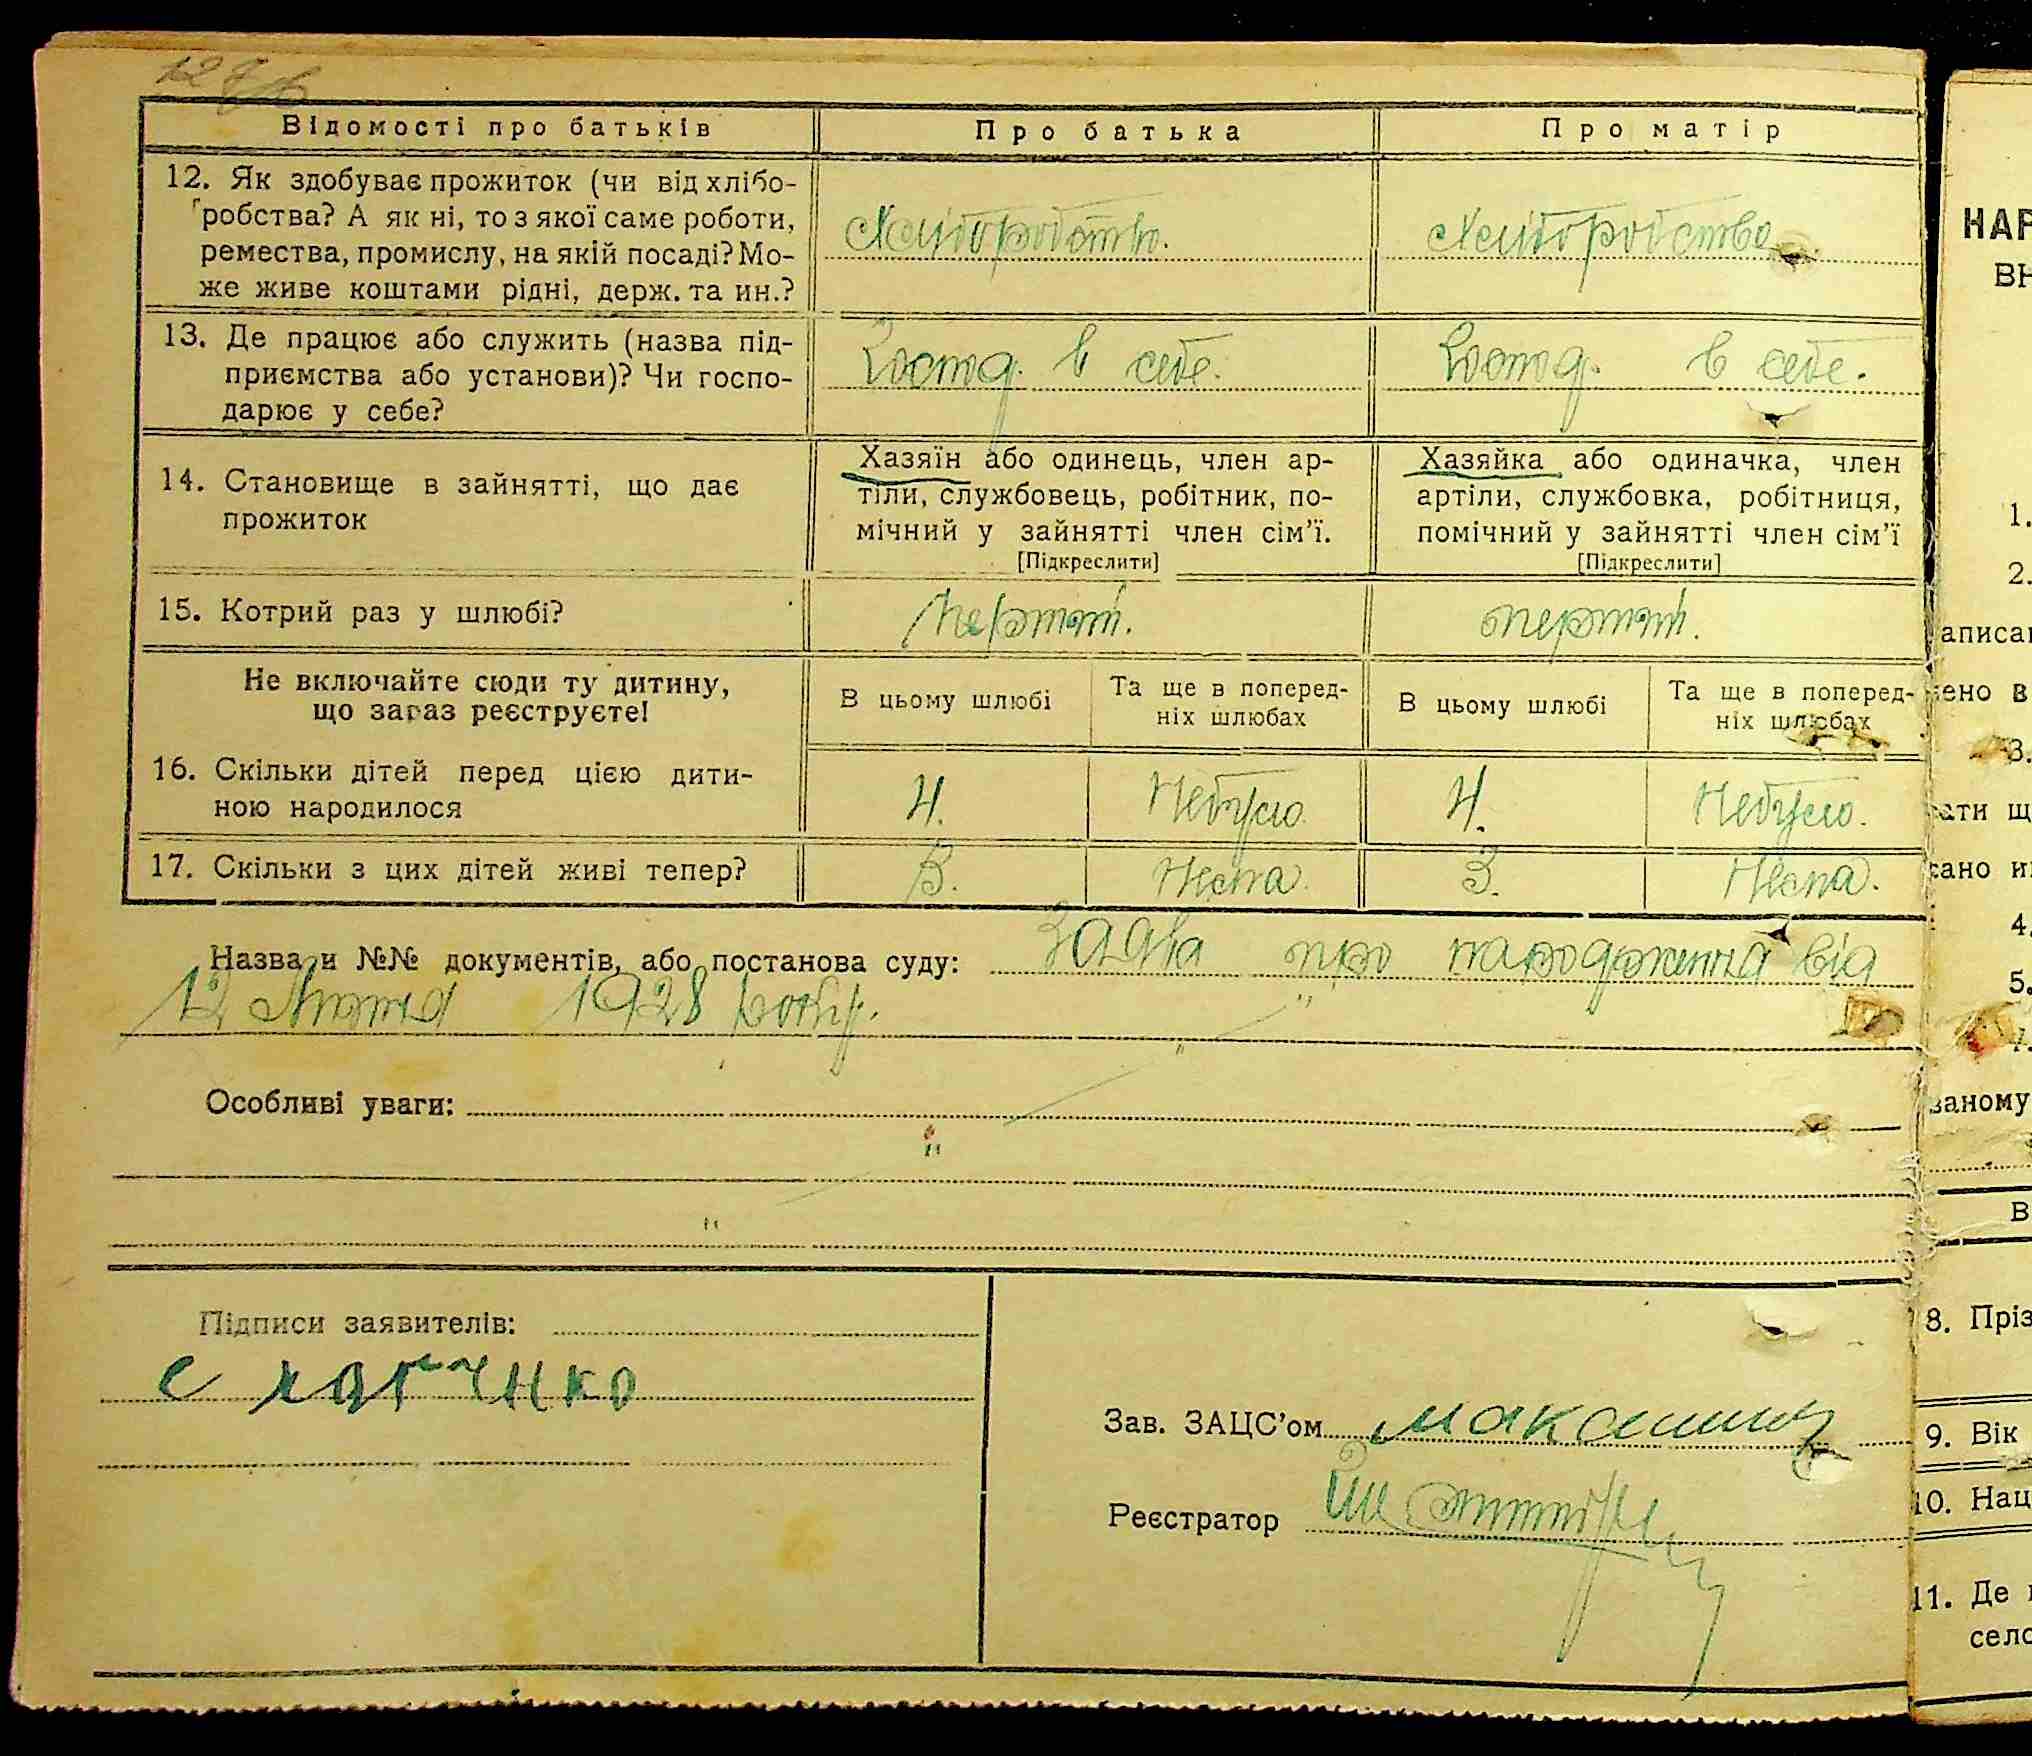 Відомості про батьків
Про батька
Про матір
12. Як здобуває прожиток (чи від хлібо-
робства? А як ні, то з якої саме роботи,
ремества, промислу, на якій посаді? Мо-
же живе коштами рідні, держ. та ин.?
Хліборобство.
Хліборобство
13. Де працює або служить (назва під-
приємства або установи)? Чи госпо-
дарює у себе?
Господ. в себе.
Господ. в себе.
14. Становище в зайнятті, що дає
прожиток
Хазяїн або одинець, член ар-
тіли, службовець, робітник, по-
мічний у зайнятті член сім’ї.
[Підкреслити]
Хазяйка або одиначка, член
артіли, службовка, робітниця,
помічний у зайнятті член сім’ї
[Підкреслити]
15. Котрий раз у шлюбі?
Не включайте сюди ту дитину,
що зараз реєструєте!
В цьому шлюбі
Та ще в поперед-
ніх шлюбах
В цьому шлюбі
Та ще в поперед-
ніх шлюбах
16. Скільки дітей перед цією дити-
ною народилося
4.
Небуло.
4.
Небуло.
17. Скільки з цих дітей живі тепер?
3.
Нема.
3.
Нема.
Назва и №№ документів, або постанова суду: Заява про народження від
12 Лютня 1928 року.
Особливі уваги:
Підписи заявителів:
Зав. ЗАЦС’ом
Реєстратор
НАР
ВН
1.
2.
аписан
ено в
3.
ати щ
сано и
4.
5.
7.
ваному
В
8. Пріз
9. Вік
10. Нац
11. Де
село